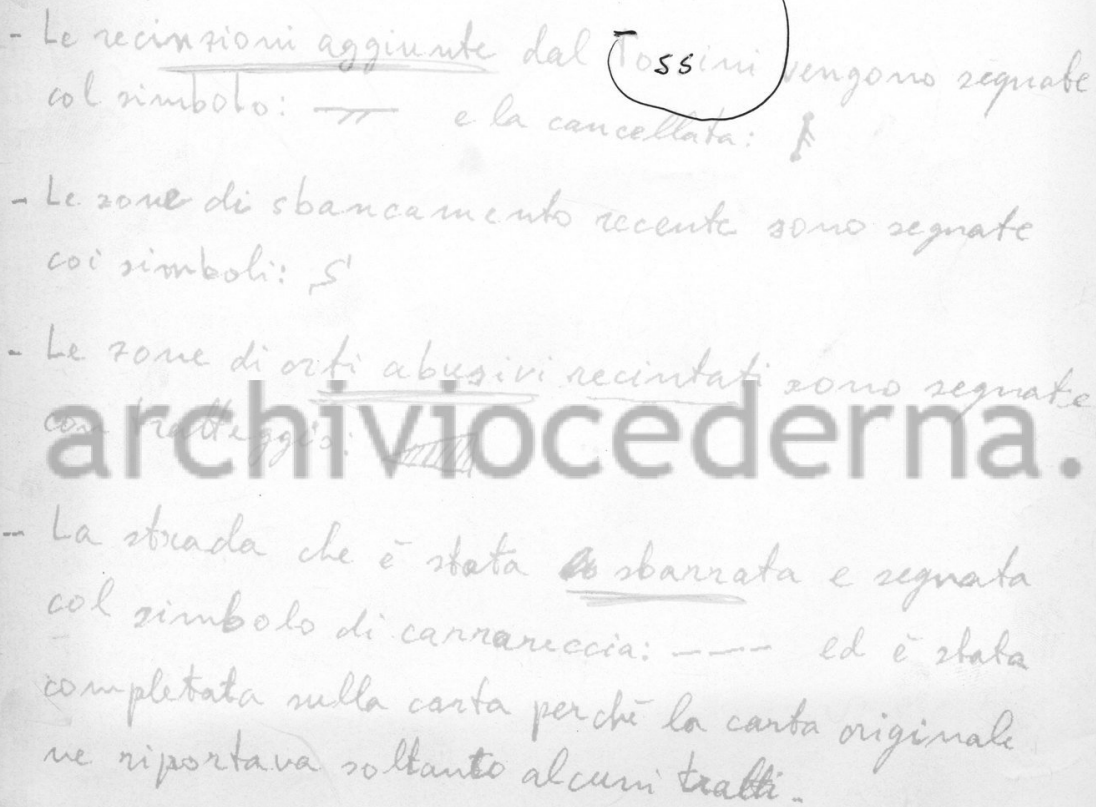 - Le recinzioni aggiunte dal Tossini vengono segnate
col simbolo: e la cancellata:
- Le zone di sbancamento recente sono segnate
coi simboli: S
- Le zone di orti abusivi recintati sono segnate
con tratteggio:
archiviocederna.
- La strada che è stata sbarrata e segnata
col simbolo di carrareccia: ---- ed è stata
completata sulla carta perchè la carta originale
ne riportava soltanto alcuni tratti.